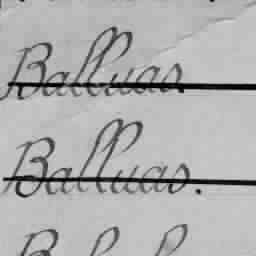 Balluas
Balluas.